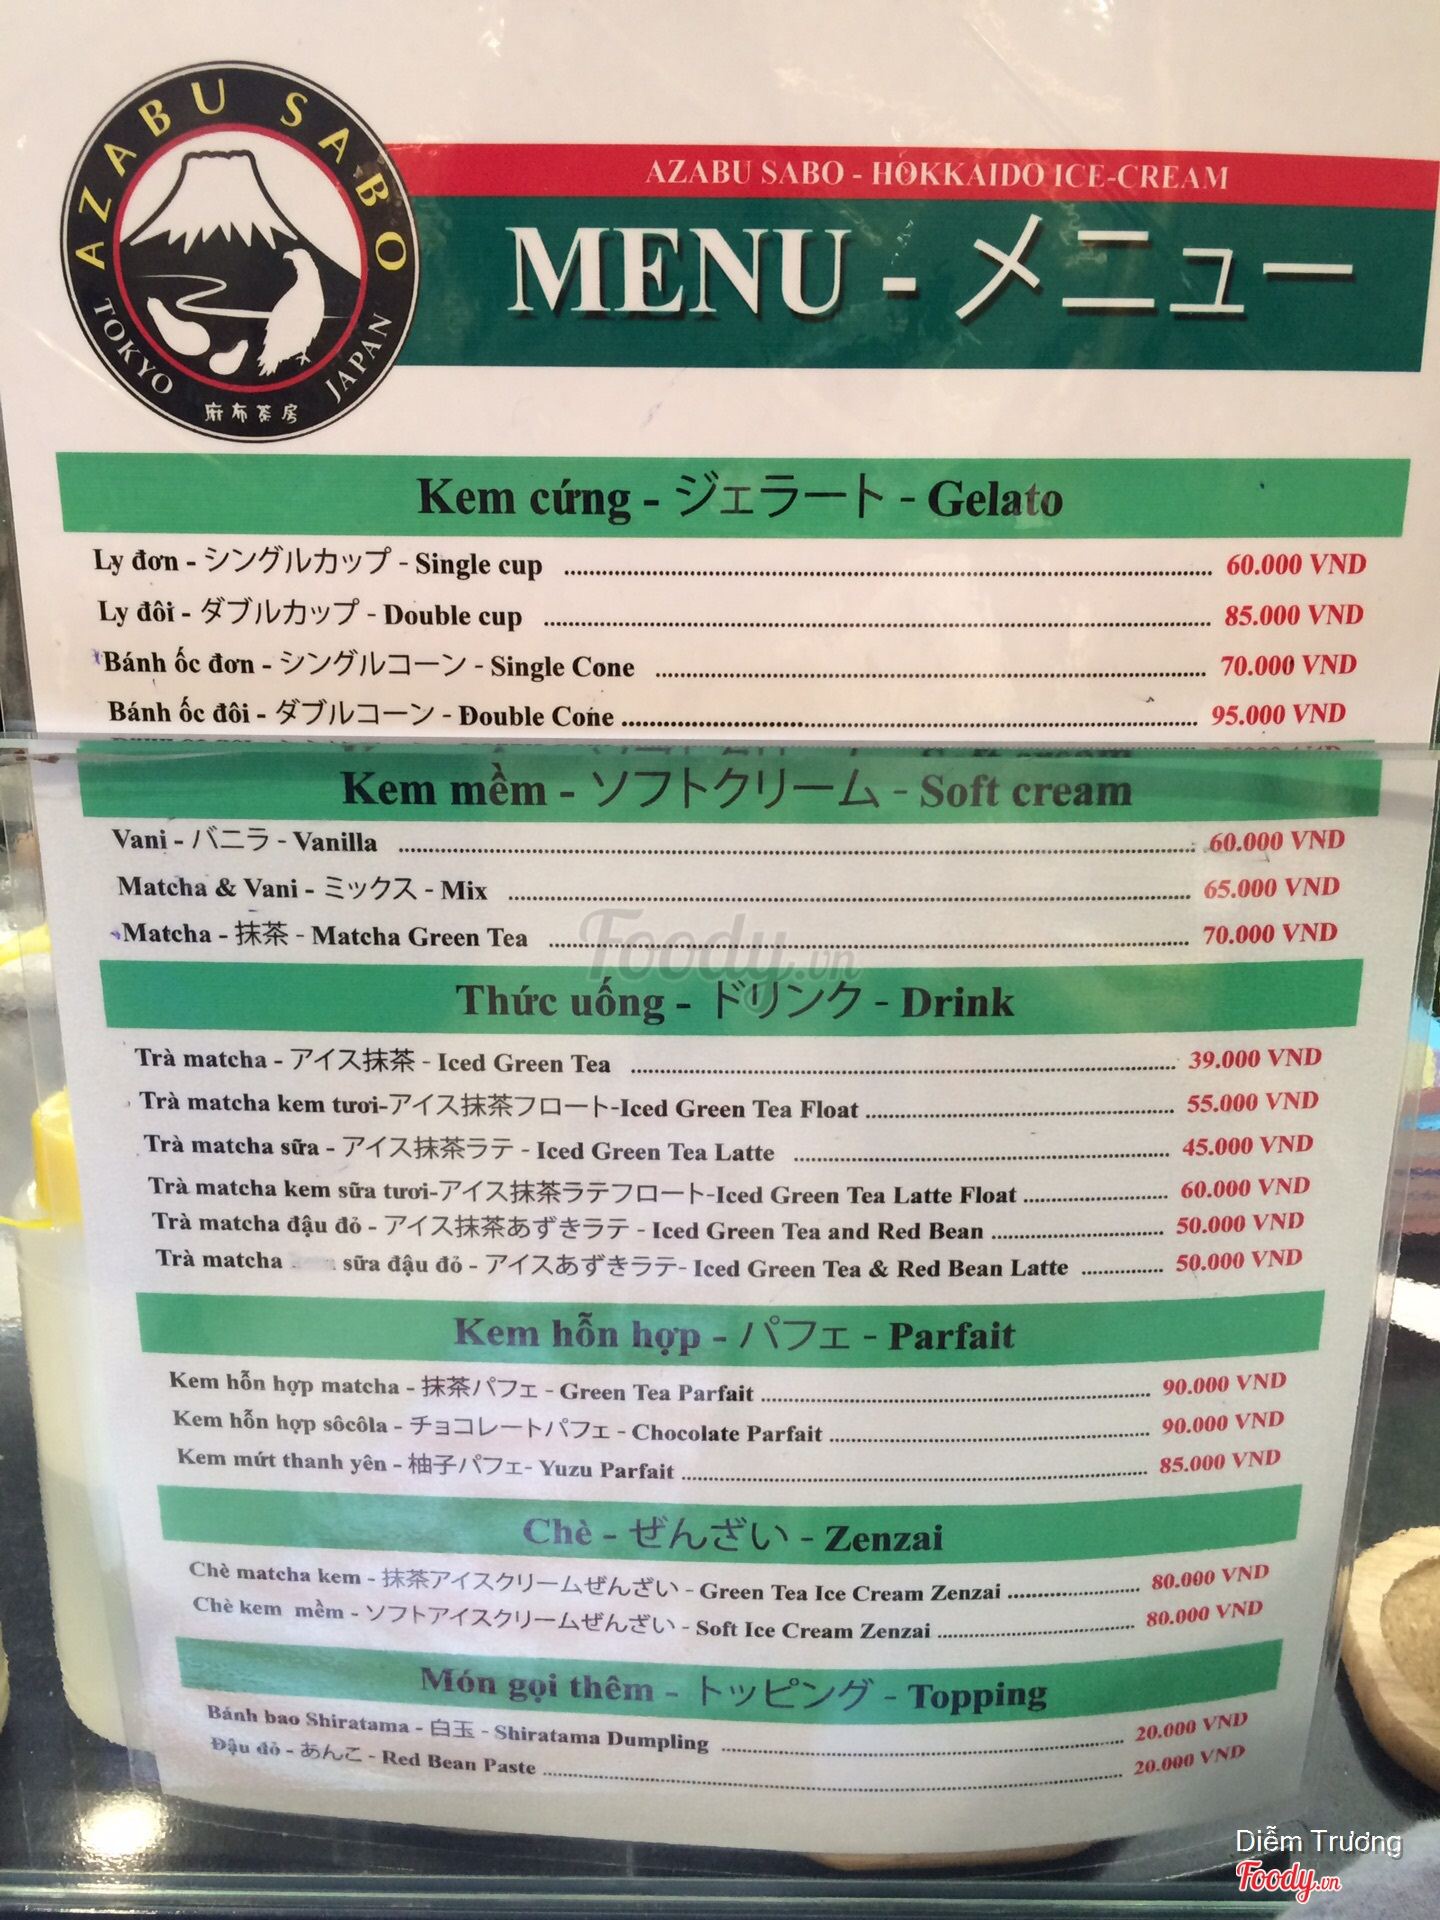 AZABU SABO
TOKYO JAPAN
麻布茶房
AZABU SABO - HOKKAIDO ICE-CREAM
MENU - メニュー
Kem cứng - ジェラート - Gelato
Ly đơn - シングルカップ - Single cup ........ 60.000 VND
Ly đôi - ダブルカップ - Double cup ........ 85.000 VND
Bánh ốc đơn - シングルコーン - Single Cone ........ 70.000 VND
Bánh ốc đôi - ダブルコーン - Double Cone ........ 95.000 VND
Kem mềm - ソフトクリーム - Soft cream
Vani - バニラ - Vanilla ........ 60.000 VND
Matcha & Vani - ミックス - Mix ........ 65.000 VND
Matcha - 抹茶 - Matcha Green Tea ........ 70.000 VND
Foody.vn
Thức uống - ドリンク - Drink
Trà matcha - アイス抹茶 - Iced Green Tea ........ 39.000 VND
Trà matcha kem tươi-アイス抹茶フロート-Iced Green Tea Float ........ 55.000 VND
Trà matcha sữa - アイス抹茶ラテ - Iced Green Tea Latte ........ 45.000 VND
Trà matcha kem sữa tươi-アイス抹茶ラテフロート-Iced Green Tea Latte Float ........ 60.000 VND
Trà matcha đậu đỏ - アイス抹茶あずきラテ - Iced Green Tea and Red Bean ........ 50.000 VND
Trà matcha sữa đậu đỏ - アイスあずきラテ- Iced Green Tea & Red Bean Latte ........ 50.000 VND
Kem hỗn hợp - パフェ - Parfait
Kem hỗn hợp matcha - 抹茶パフェ - Green Tea Parfait ........ 90.000 VND
Kem hỗn hợp sôcôla - チョコレートパフェ - Chocolate Parfait ........ 90.000 VND
Kem mứt thanh yên - 柚子パフェ- Yuzu Parfait ........ 85.000 VND
Chè - ぜんざい - Zenzai
Chè matcha kem - 抹茶アイスクリームぜんざい - Green Tea Ice Cream Zenzai ........ 80.000 VND
Chè kem mềm - ソフトアイスクリームぜんざい - Soft Ice Cream Zenzai ........ 80.000 VND
Món gọi thêm - トッピング - Topping
Bánh bao Shiratama - 白玉 - Shiratama Dumpling ........ 20.000 VND
Đậu đỏ - あんこ - Red Bean Paste ........ 20.000 VND
Diễm Trương
Foody.vn